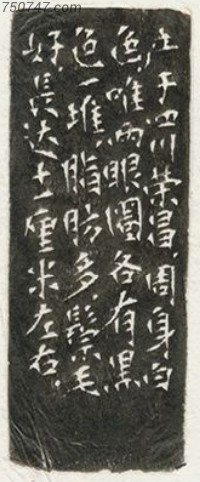 750747.com
产于四川荣昌,周身白
色,唯两眼圈各有黑
色一堆,脂肪多,鬃毛
好,长达十二厘米左右.